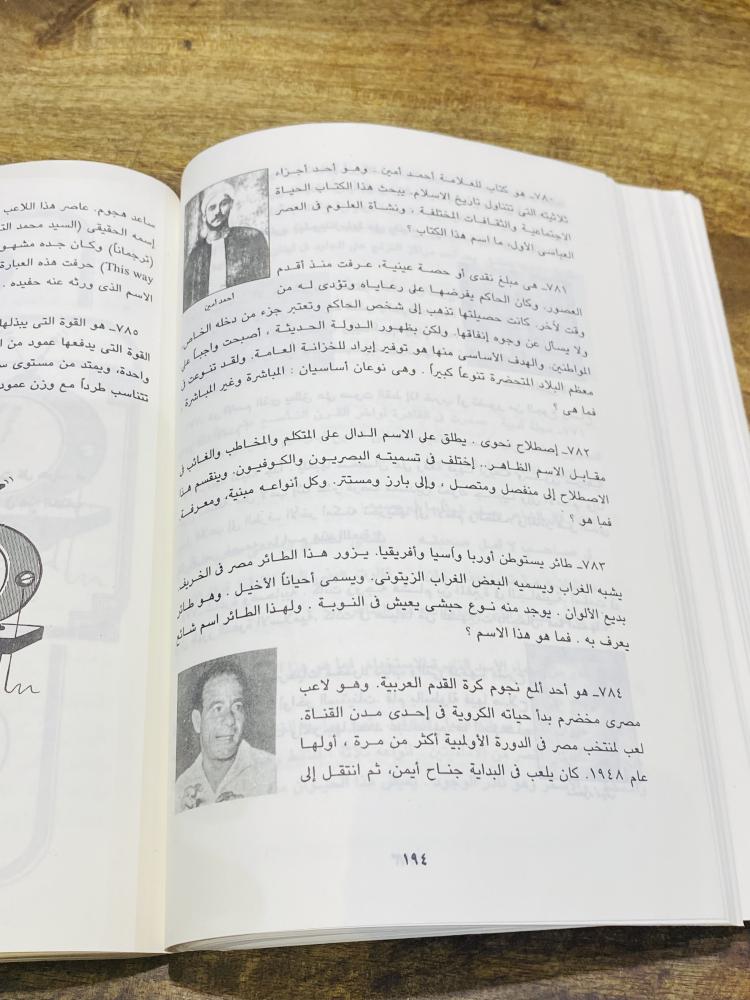 ٧٨٠ـ هو كتاب للعلامة أحمد أمين . وهو أحد أجزاء
ثلاثيته التى تتناول تاريخ الاسلام. يبحث هذا الكتاب الحياة
الاجتماعية والثقافات المختلفة ، ونشأة العلوم فى العصر
العباسى الأول. ما اسم هذا الكتاب ؟
أحمد أمين
٧٨١ـ هى مبلغ نقدى أو حصة عينية، عرفت منذ أقدم
العصور. وكان الحاكم يفرضها على رعاياه وتؤدى له من
وقت لآخر. كانت حصيلتها تذهب إلى شخص الحاكم وتعتبر جزء من دخله الخاص،
ولا يسأل عن وجوه إنفاقها. ولكن بظهور الدولة الحديثة ، أصبحت واجباً على
المواطنين. والهدف الأساسى منها هو توفير إيراد للخزانة العامة. ولقد تنوعت فى
معظم البلاد المتحضرة تنوعاً كبيراً . وهى نوعان أساسيان : المباشرة وغير المباشرة
فما هى ؟
٧٨٢ـ إصطلاح نحوى . يطلق على الاسم الدال على المتكلم والمخاطب والغائب فى
مقابل الاسم الظاهر.. إختلف فى تسميته البصريون والكوفيون. وينقسم هذا
الاصطلاح إلى منفصل ومتصل ، وإلى بارز ومستتر. وكل أنواعه مبنية، ومعرفة
فما هو ؟
٧٨٣ـ طائر يستوطن أوربا وآسيا وأفريقيا. يزور هذا الطائر مصر فى الخريف.
يشبه الغراب ويسميه البعض الغراب الزيتونى. ويسمى أحياناً الأخيل . وهو طائر
بديع الألوان . يوجد منه نوع حبشى يعيش فى النوبة . ولهذا الطائر اسم شائع
يعرف به . فما هو هذا الاسم ؟
٧٨٤ـ هو أحد ألمع نجوم كرة القدم العربية. وهو لاعب
مصرى مخضرم بدأ حياته الكروية فى إحدى مدن القناة.
لعب لمنتخب مصر فى الدورة الأولمبية أكثر من مرة ، أولها
عام ١٩٤٨. كان يلعب فى البداية جناح أيمن، ثم انتقل إلى
١٩٤
ساعد هجوم. عاصر هذا اللاعب
إسمه الحقيقى (السيد محمد
(ترجماناً) وكان جده
This way) حرفت هذه العبارة
الاسم الذى ورثه عنه حفيده .
٧٨٥ـ هو القوة التى يبذلها
القوة التى يدفعها عمود من
واحدة، ويمتد من مستوى
تتناسب طرداً مع وزن عمود